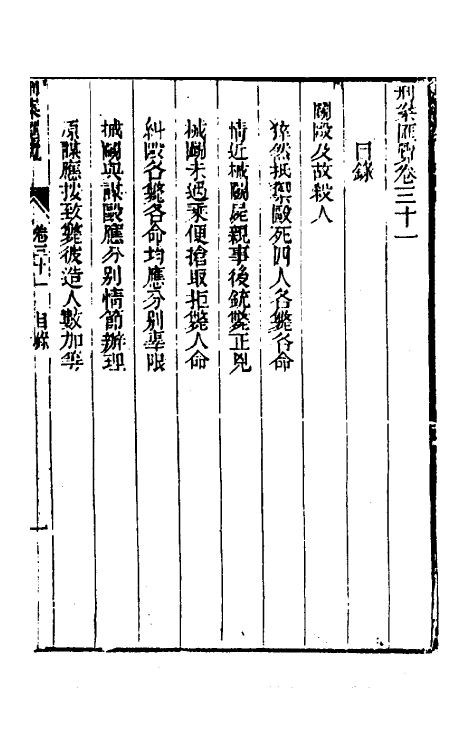 刑案匯覽卷三十一
目錄
鬬毆及故殺人
猝然抵禦毆死四人各斃各命
情近械鬬屍親事後銃斃正兇
械鬬未遇乘便搶取拒斃人命
糾毆各斃各命均應分別辜限
械鬬與謀毆應分別情節辦理
原謀應按致斃彼造人數加等
刑案匯覽 卷三十一 目錄 一